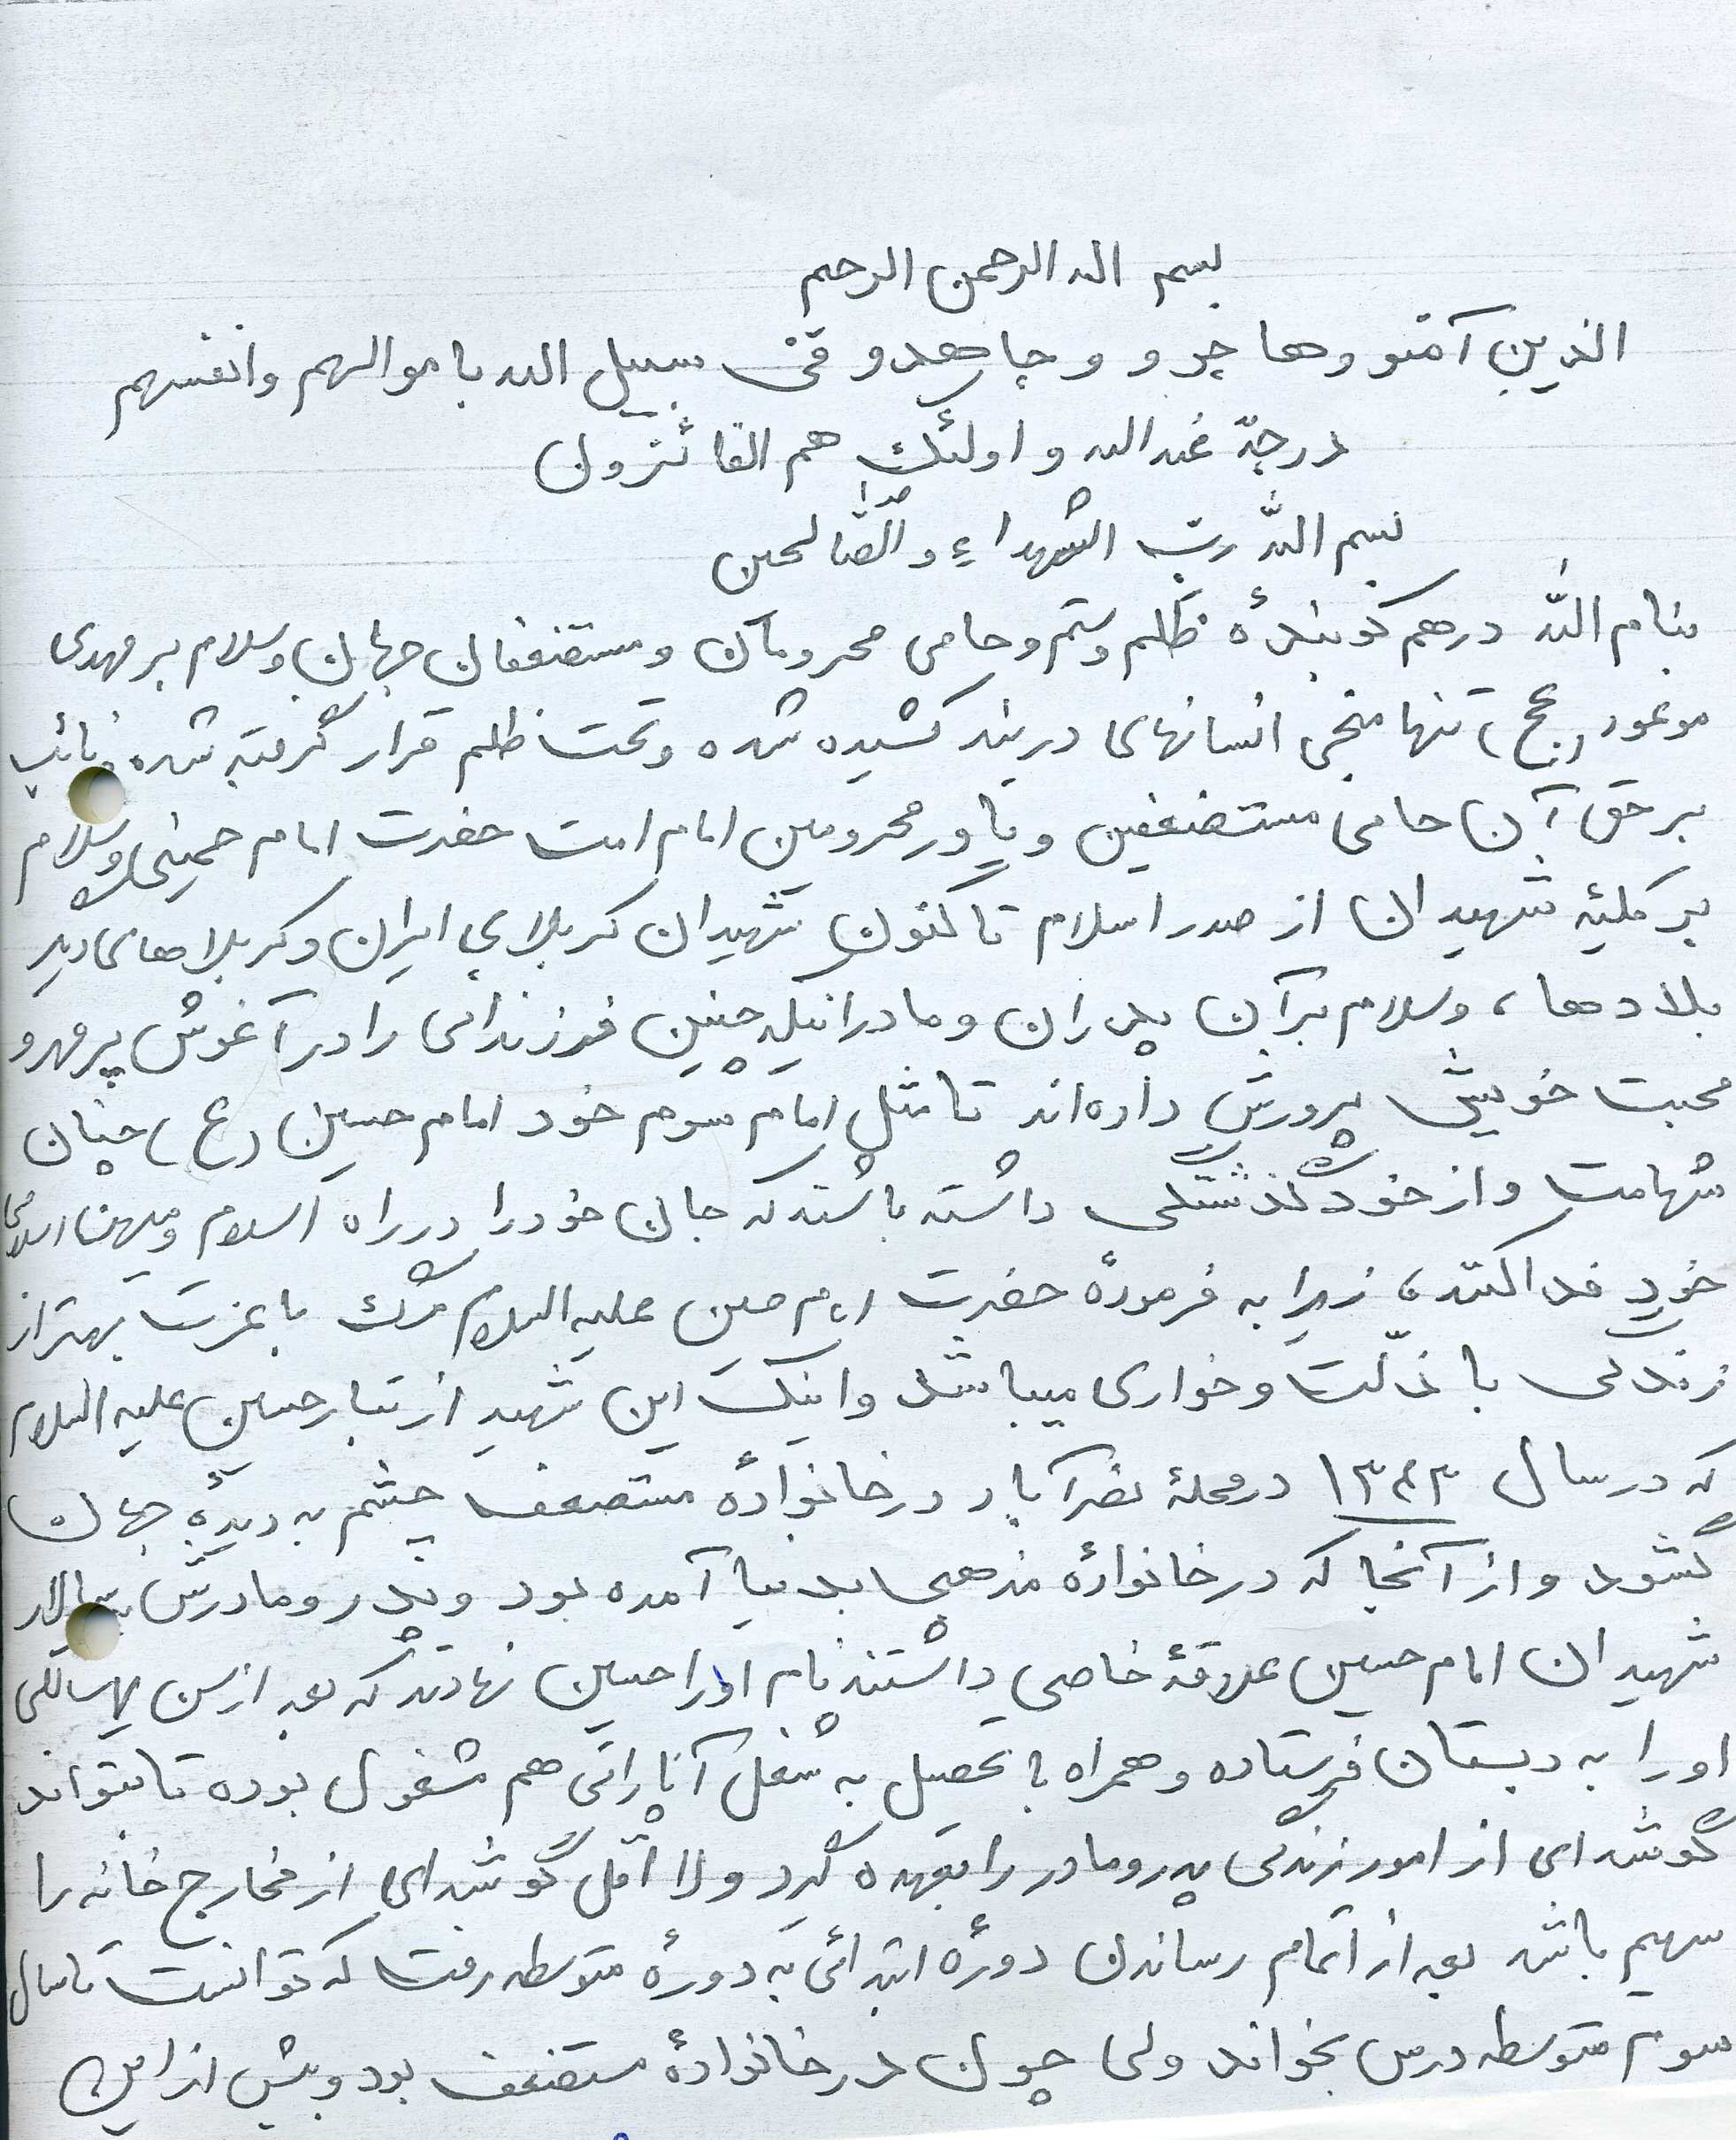 بسم الله الرحمن الرحیم
الذین آمنو وهاجرو وجاهدو فی سبیل الله باموالهم وانفسهم
درجة عندالله و اولئک هم الفائزون
بسم اللّه ربّ الشهداء و الصّالحین
بنام اللّه درهم کوبندهٔ ظلم وستم وحامی محرومان ومستضعفان جهان وسلام بر مهدی
موعود (عج) تنها منجی انسانهای دربند کشیده شده و تحت ظلم قرار گرفته شده و نائب
بر حق آن حامی مستضعفین و یاور محرومین امام امت حضرت امام خمینی وسلام
بر کلیّه شهیدان از صدر اسلام تاکنون شهیدان کربلای ایران و کربلاهای دیگر
بلادها، وسلام برآن پدران و مادرانیکه چنین فرزندانی را در آغوش پرمهر و
محبت خویش پرورش داده‌اند تا مثل امام سوم خود امام حسین (ع) چنان
شهامت و از خودگذشتگی داشته باشند که جان خود را در راه اسلام و میهن اسلامی
خود فدا کنند، زیرا به فرمودهٔ حضرت امام حسین علیه السلام مرگ با عزت بهتر از
زندگی با ذلّت و خواری میباشد و اینک این شهید از تبار حسین علیه السلام
که در سال ۱۳۴۳ در محلهٔ نصرآباد در خانوادهٔ مستضعف چشم به دیدهٔ جهان
گشود و از آنجا که در خانوادهٔ مذهبی بدنیا آمده بود و پدر و مادرش سالار
شهیدان امام حسین علاقهٔ خاصی داشتند نام او را حسین نهادند که بعد از سن سالگی
او را به دبستان فرستاده و همراه با تحصیل به شغل آپاراتی هم مشغول بوده تا بتواند
گوشه‌ای از امور زندگی پدر و مادر را بعهده گیرد و لااقل گوشه‌ای از مخارج خانه را
سهیم باشد بعد از اتمام رساندن دورهٔ ابتدائی به دورهٔ متوسطه رفت که توانست تا سال
سوم متوسطه درس بخواند ولی چون در خانوادهٔ مستضعف بود و بیش از این